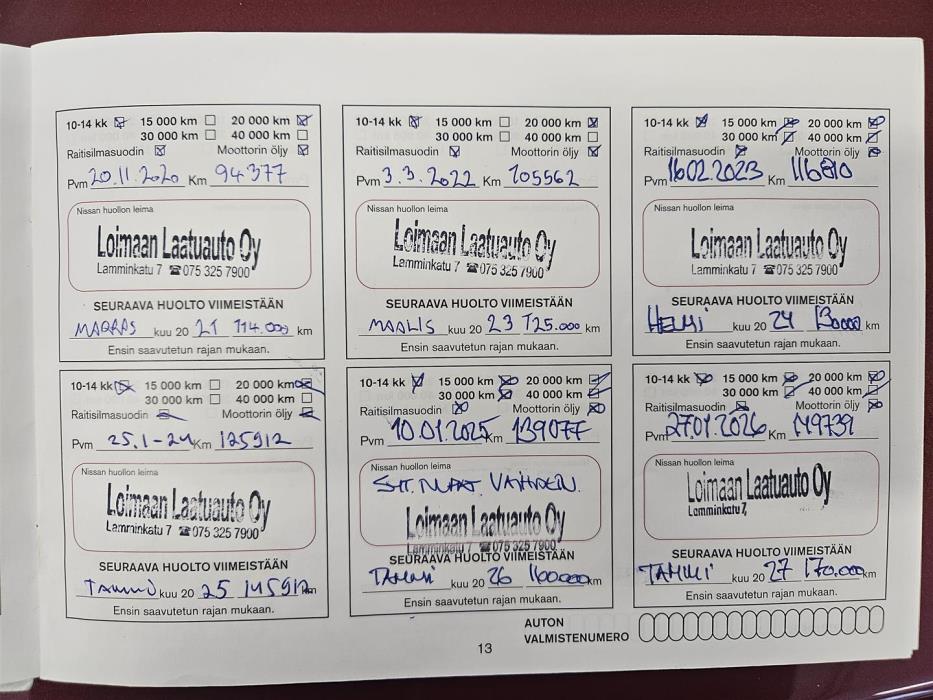 10-14 kk 15 000 km 20 000 km
30 000 km 40 000 km
Raitisilmasuodin Moottorin öljy
Pvm 20.11.2020 Km 94377
Nissan huollon leima
Loimaan Laatuauto Oy
Lamminkatu 7 ☎075 325 7900
SEURAAVA HUOLTO VIIMEISTÄÄN
MARRAS kuu 20 21 114.000 km
Ensin saavutetun rajan mukaan.
10-14 kk 15 000 km 20 000 km
30 000 km 40 000 km
Raitisilmasuodin Moottorin öljy
Pvm 3.3.2022 Km 105562
Nissan huollon leima
Loimaan Laatuauto Oy
Lamminkatu 7 ☎075 325 7900
SEURAAVA HUOLTO VIIMEISTÄÄN
MAALIS kuu 20 23 125.000 km
Ensin saavutetun rajan mukaan.
10-14 kk 15 000 km 20 000 km
30 000 km 40 000 km
Raitisilmasuodin Moottorin öljy
Pvm 16.02.2023 Km 116810
Nissan huollon leima
Loimaan Laatuauto Oy
Lamminkatu 7 ☎075 325 7900
SEURAAVA HUOLTO VIIMEISTÄÄN
HELMI kuu 20 24 130000 km
Ensin saavutetun rajan mukaan.
10-14 kk 15 000 km 20 000 km
30 000 km 40 000 km
Raitisilmasuodin Moottorin öljy
Pvm 25.1-24 Km 125912
Nissan huollon leima
Loimaan Laatuauto Oy
Lamminkatu 7 ☎075 325 7900
SEURAAVA HUOLTO VIIMEISTÄÄN
TAMMI kuu 20 25 145912 km
Ensin saavutetun rajan mukaan.
10-14 kk 15 000 km 20 000 km
30 000 km 40 000 km
Raitisilmasuodin Moottorin öljy
Pvm 10.01.2025 Km 139077
Nissan huollon leima
Loimaan Laatuauto Oy
Lamminkatu 7 ☎075 325 7900
SEURAAVA HUOLTO VIIMEISTÄÄN
TAMMI kuu 20 26 160000 km
Ensin saavutetun rajan mukaan.
10-14 kk 15 000 km 20 000 km
30 000 km 40 000 km
Raitisilmasuodin Moottorin öljy
Pvm 27.01.2026 Km 149739
Nissan huollon leima
Loimaan Laatuauto Oy
Lamminkatu 7,
SEURAAVA HUOLTO VIIMEISTÄÄN
TAMMI kuu 20 27 170.000 km
Ensin saavutetun rajan mukaan.
AUTON
VALMISTENUMERO
13